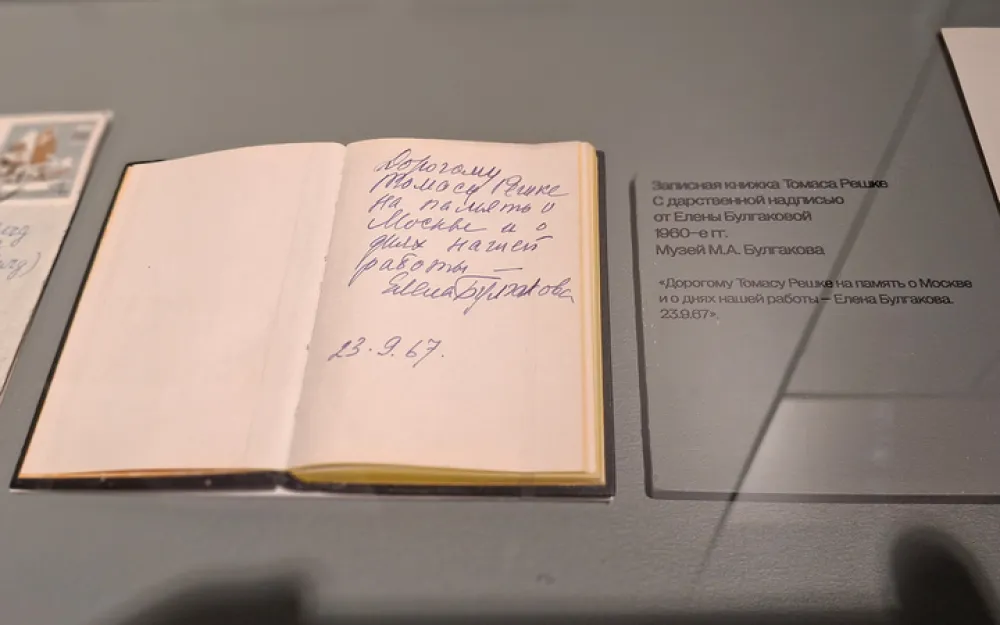 Дорогому
Томасу Решке
на память о
Москве и о
днях нашей
работы —
Елена Булгакова
23.9.67.
Записная книжка Томаса Решке
С дарственной надписью
от Елены Булгаковой
1960-е гг.
Музей М.А. Булгакова
«Дорогому Томасу Решке на память о Москве
и о днях нашей работы – Елена Булгакова.
23.9.67».